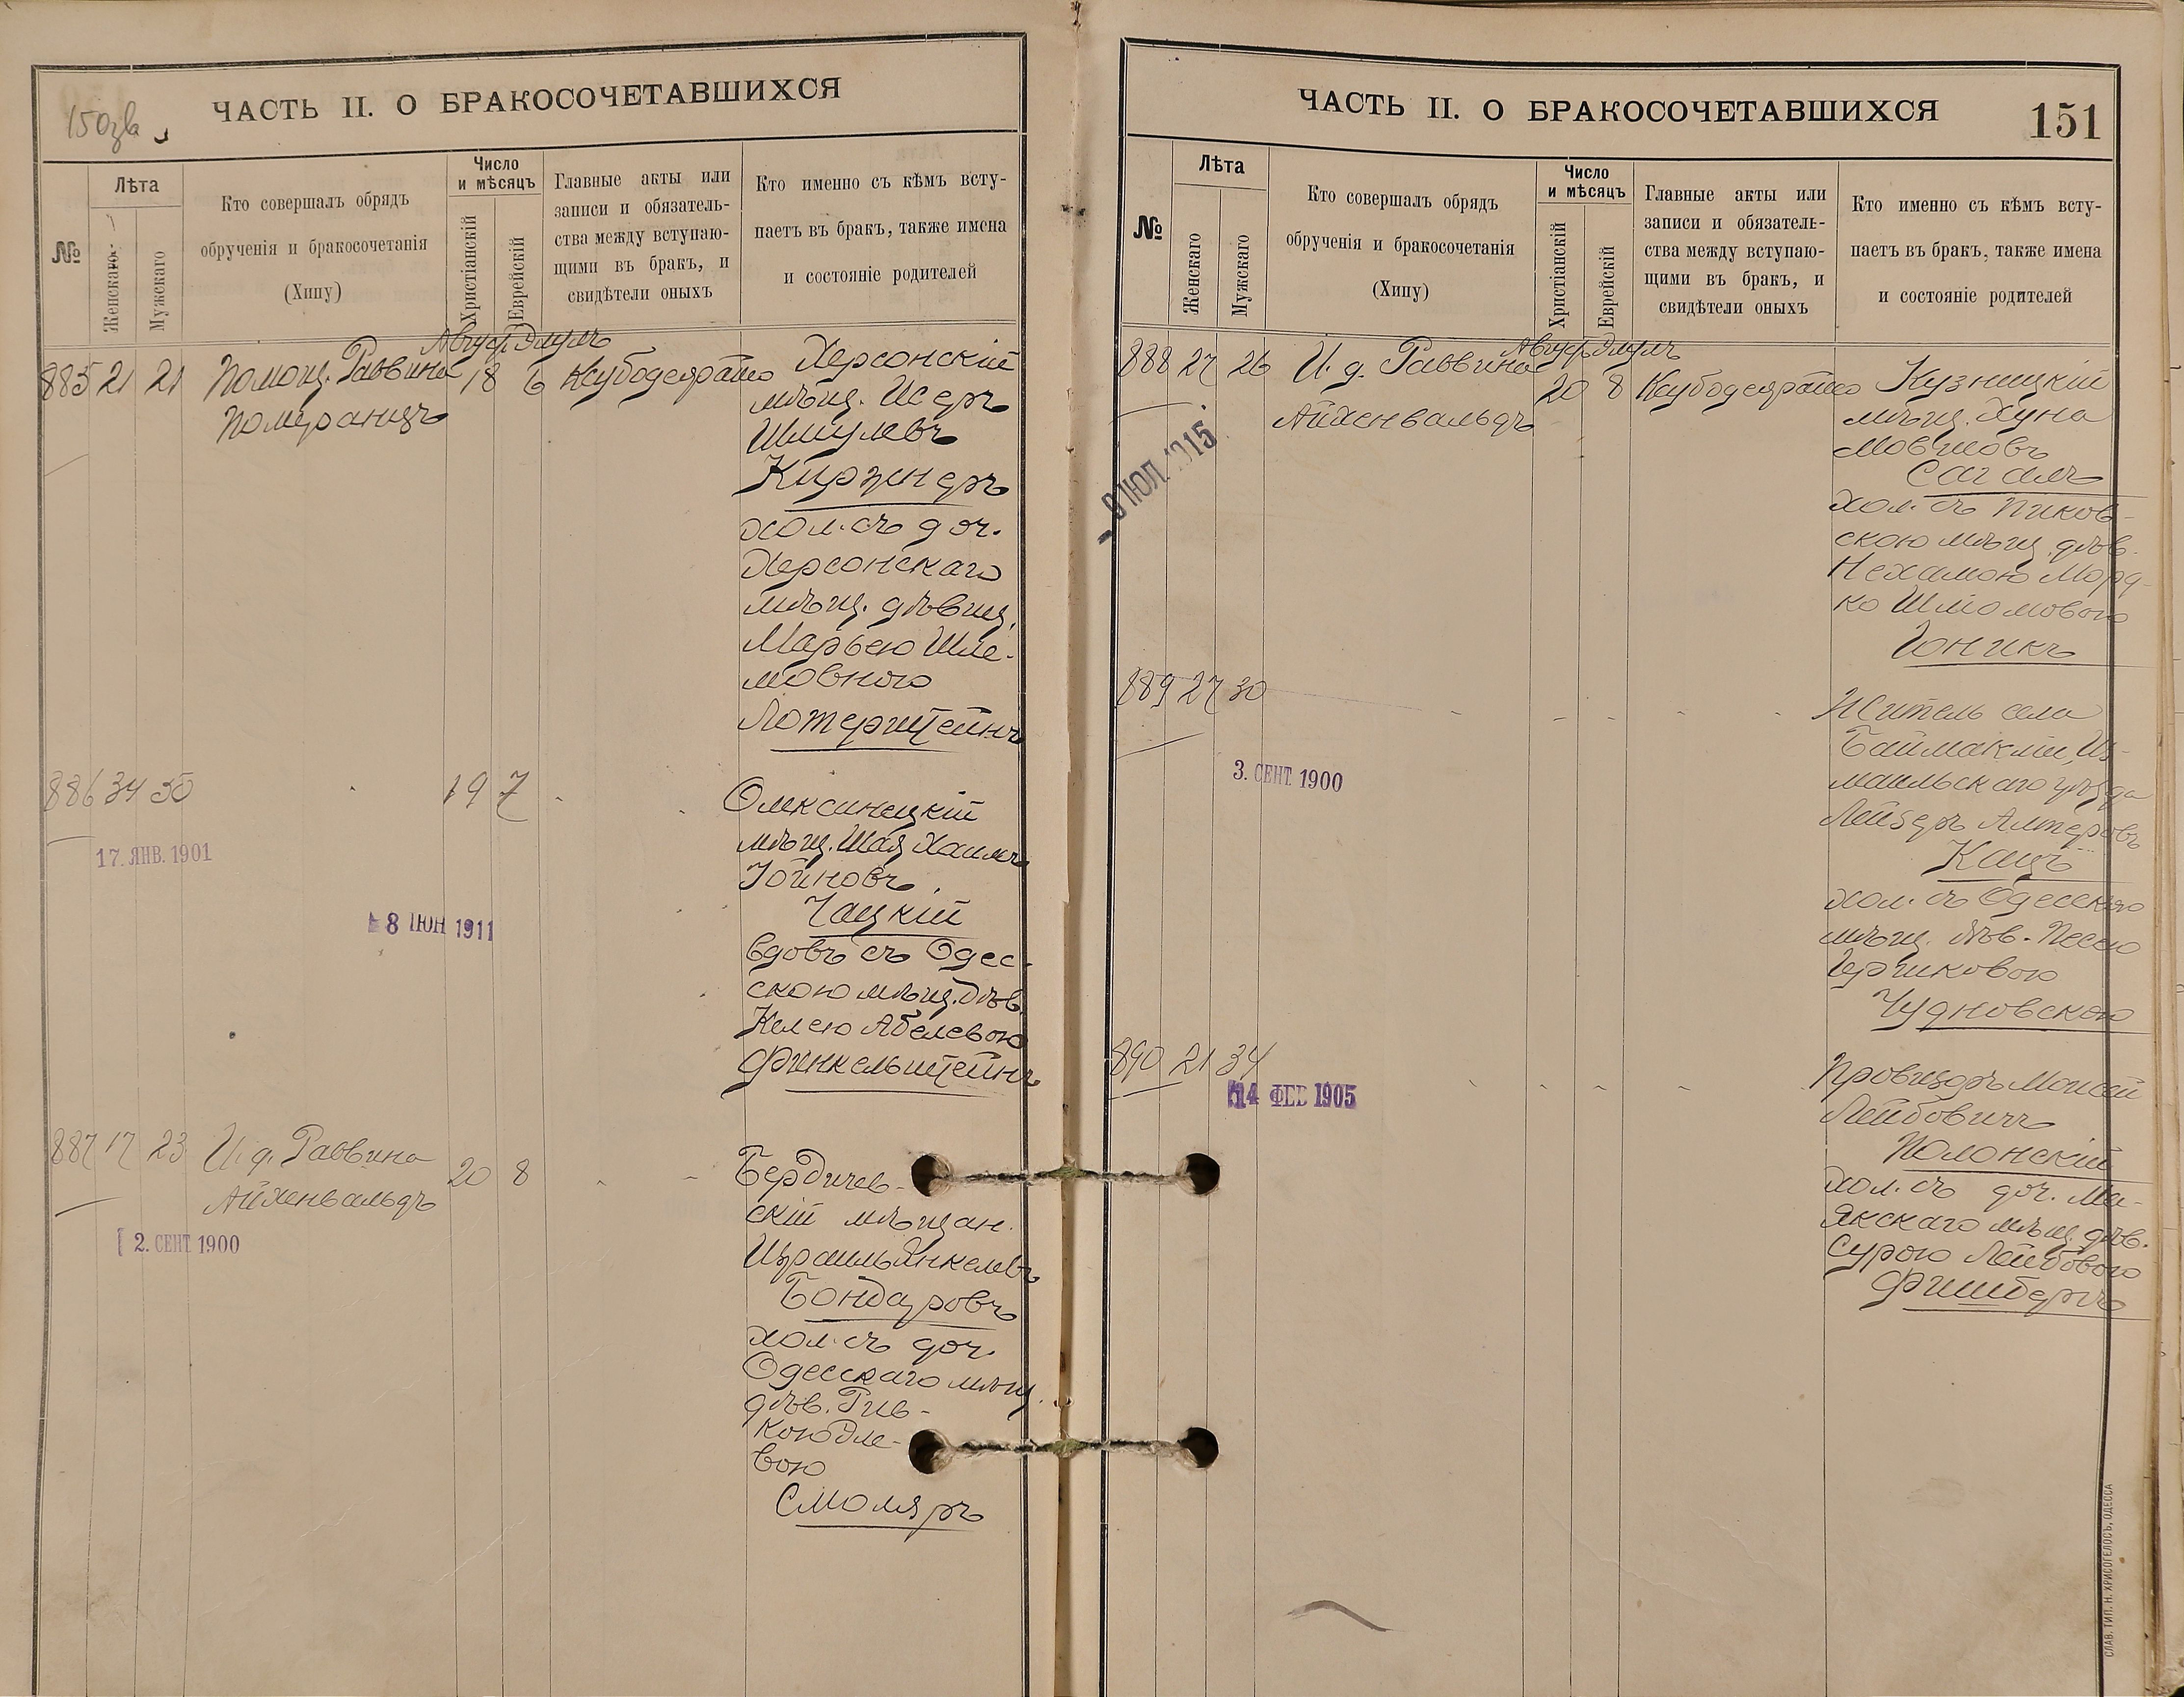 150зв
ЧАСТЬ II. О БРАКОСОЧЕТАВШИХСЯ
№
Лѣта
Женскаго
Мужскаго
Кто совершалъ обрядъ
обрученія и бракосочетанія
(Хипу)
Число
и мѣсяцъ
Христіанскій
Еврейскій
Главные акты или
записи и обязатель-
ства между вступаю-
щими въ бракъ, и
свидѣтели оныхъ
Кто именно съ кѣмъ всту-
паетъ въ бракъ, также имена
и состояніе родителей
Август Элулъ
885 21 21 Помощ. Раввина 18 6
Померанцъ
Херсонскій
мѣщ. Исеръ
Шмулевъ
Кирзнеръ
хол. съ доч.
Херсонскаго
мѣщ. дѣвиц.
Марьею Шле-
мовною
Лотерштейнъ
886 34 50 19 7
17. ЯНВ. 1901
8 ІЮН 1911
Олексинецкій
мѣщ. Шая Хаимъ
Іойновъ
Чацкій
вдовъ съ Одес-
скою мѣщ. дѣв.
Келею Абелевою
Финкельштейнъ
887 17 23 И. д. Раввина 20 8
Айхенвальдъ
2. СЕНТ 1900
Бердичев-
скій мѣщан.
Израиль Янкелевъ
Бондаровъ
хол. съ доч.
Одесскаго мѣщ.
дѣв. Рив-
кою Эле-
вою
Смоляръ
ЧАСТЬ II. О БРАКОСОЧЕТАВШИХСЯ
151
№
Лѣта
Женскаго
Мужскаго
Кто совершалъ обрядъ
обрученія и бракосочетанія
(Хипу)
Число
и мѣсяцъ
Христіанскій
Еврейскій
Главные акты или
записи и обязатель-
ства между вступаю-
щими въ бракъ, и
свидѣтели оныхъ
Кто именно съ кѣмъ всту-
паетъ въ бракъ, также имена
и состояніе родителей
Август Элулъ
888 27 26 И. д. Раввина 20 8
Айхенвальдъ
1915
Кузницкій
мѣщ. Хуна
Мовшовъ
Сагалъ
хол. съ Пиков-
скою мѣщ. дѣв.
Нехамою Морд-
ко Шліомовою
Гоникъ
889 27 30
3. СЕНТ. 1900
Житель села
Баймакліи, Из-
маильскаго уѣзда
Лейзеръ Алтеровъ
Кацъ
хол. съ Одесскою
мѣщ. дѣв. Песею
Гершковою
Чудновскою
890 21 34
14 ФЕВ 1905
Провизоръ Моисей
Лейбовичъ
Полонскій
хол. съ доч. Ма-
якскаго мѣщ. дѣв.
Сурою Лейбовою
Фишбергъ
СЛАВ. ТИП. Н. ХРИСОГЕЛОСЪ, ОДЕССА